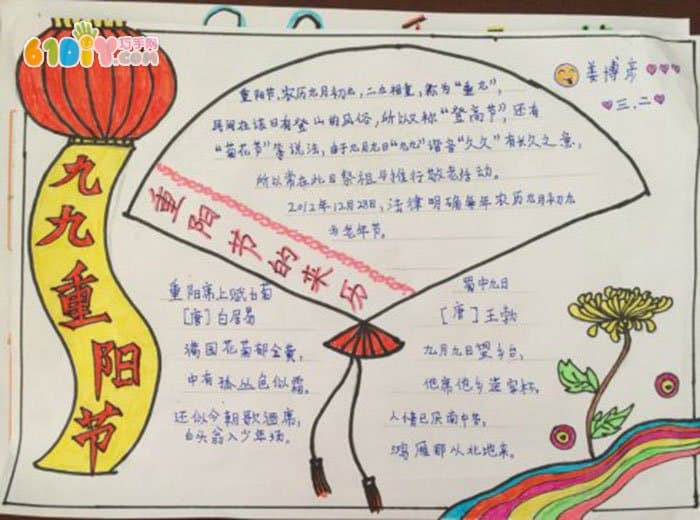 61DIY.com 巧手网
九九重阳节
三.二
重阳节,农历九月初九,二九相重,称为“重九”,
民间在该日有登山的风俗,所以又称“登高节”,还有
“菊花节”等说法,由于九月九日“九九”谐音“久久”有长久之意,
所以常在此日祭祖与推行敬老活动。
2012年12月28日,法律明确每年农历九月初九
为老年节。
重阳节的来历
重阳席上赋白菊
[唐]白居易
满园花菊郁金黄,
中有孤丛色似霜。
还似今朝歌酒席,
白头翁入少年场。
蜀中九日
[唐]王勃
九月九日望乡台,
他席他乡送客杯。
人情已厌南中苦,
鸿雁那从北地来。